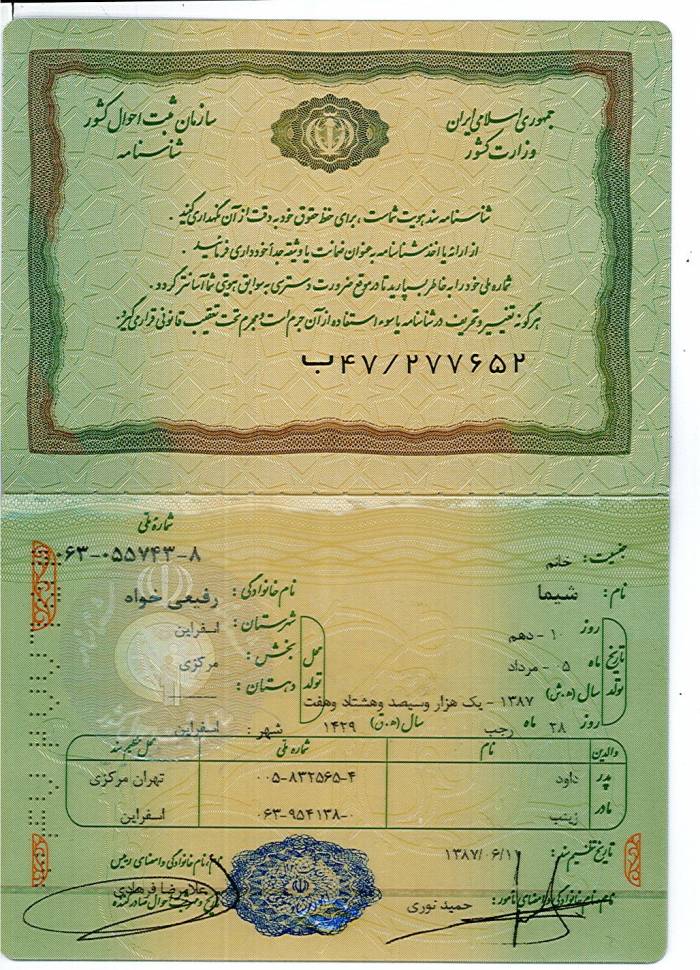 جمهوری اسلامی ایران
وزارت کشور
سازمان ثبت احوال کشور
شناسنامه
شناسنامه سند هویت شماست، برای حفظ حقوق خود به دقت از آن نگهداری کنید .
از ارائه یا اخذ شناسنامه به عنوان ضمانت یا وثیقه جداً خودداری فرمائید .
شماره ملی خود را به خاطر بسپارید تا در موقع ضرورت دسترسی به سوابق هویتی شما آسانتر گردد .
هرگونه تغییر و تحریف در شناسنامه یا سوء استفاده از آن جرم است و مجرم تحت تعقیب قانونی قرار می گیرد.
ب۴۷/۲۷۷۶۵۲
شماره ملی
۰۶۳-۰۵۵۷۴۳-۸
جنسیت : خانم
نام : شیما
نام خانوادگی : رفیعی خواه
تاریخ تولد
روز ۱۰ - دهم
ماه ۰۵ - مرداد
سال (ه.ش) ۱۳۸۷ - یک هزار وسیصد وهشتاد وهفت
روز ۲۸ ماه رجب سال (ه.ق) ۱۴۲۹
محل تولد
شهرستان : اسفراین
بخش : مرکزی
دهستان : ------
شهر : اسفراین
والدین نام شماره ملی محل تنظیم سند
پدر داود ۰۰۵-۸۳۲۵۶۵-۴ تهران مرکزی
مادر زینب ۰۶۳-۹۵۴۱۳۸-۰ اسفراین
تاریخ تنظیم سند : ۱۳۸۷/۰۶/۱۱
نام، نام خانوادگی و امضای مأمور : حمید نوری
نام، نام خانوادگی و امضای رییس
غلامرضا فرهادی